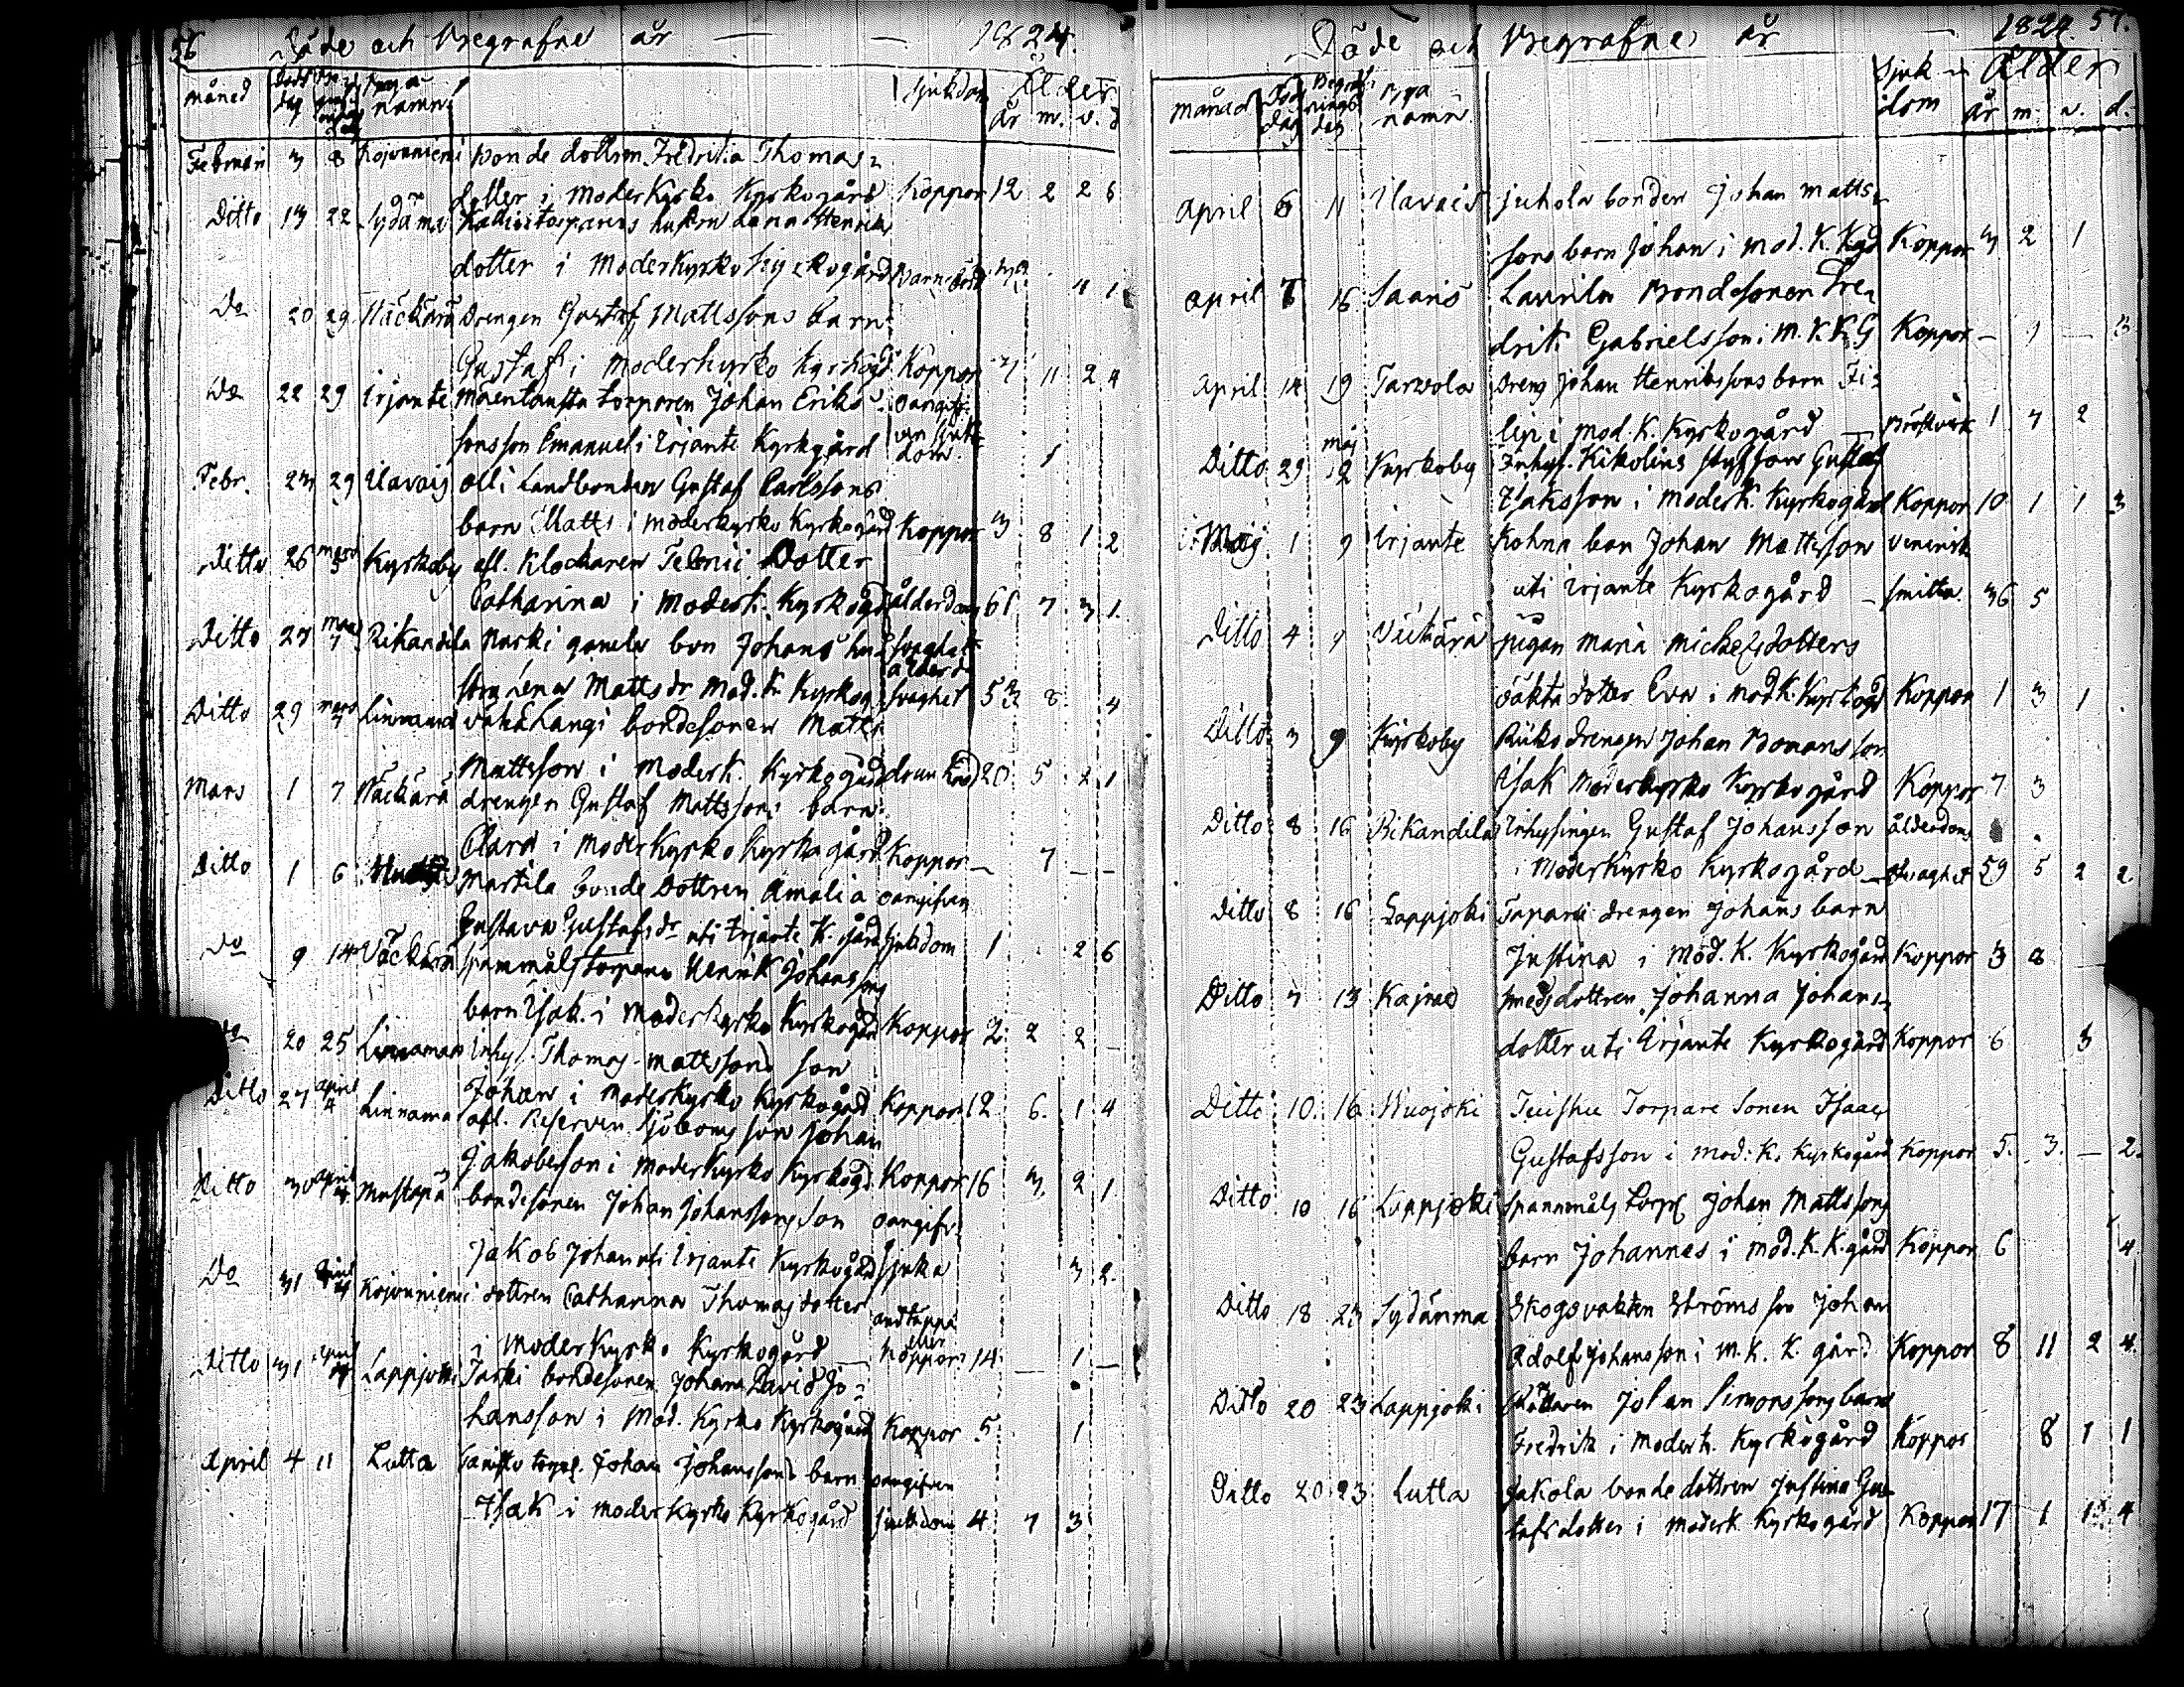 56 Döde och Begrafne år — — 1824.
månad dag Bya namn sjukdom Ålder år m. v. d
Februari 3 8 Kojvonieni Bonde dottren Fredrika Thomas-
dotter i Moderkyrko Kyrkogård Koppor 12 2 2 6
Ditto 13 22 Sydäma torparens hustru Lena Henriks
dotter i Moderkyrko Barnsbörd
Do 20 29 Näckärä Drengen Gustaf Mattssons barn
Gustaf i moderkyrko kyrkogd Koppor 3 11 2 4
Do 22 29 Irjante torparen Johan Eriks- oangif-
sons son Emanuel i Irjante Kyrkgård ven sjuk- dom. 1
Febr. 23 29 Ilavais olli Landbonden Gustaf Carlssons
barn Matts i moderkyrko Kyrkogård Koppor 3 8 1 2
Ditto 26 mars 5 Kyrkoby afl. Klockaren Dotter
Catharina i Moderk. Kyrkogd ålderdom 61 7 3 1.
Ditto 27 mars 7 Rikandila gamla bon Johans hu- svaghet
stru Lena Matts dr Mod. K. Kyrkog. ålderd svaghet 53 8 4
Ditto 29 mars 7 Linnamaa vähähangi bondesonen Matts
Mattsson i Moderk. Kyrkogård 20 5 2 1
Mars 1 7 Näckärä drengen Gustaf Mattssons barn
Clara i moderkyrko kyrkogård Koppor — 7 — —
Ditto 1 6 Martila bonde Dottren Amalia oangifven
Gustava Gustafs dr uti Irjante K. gård sjukdom 1 2 6
Do 9 14 Väckärä spanmåls torparen Henrik Johanssons
barn Isak i Moderkyrko Kyrkogård Koppor 2 2 2 —
Do 20 25 Linnamaa Inhys. Thomas Mattssons son
Johan i Moderkyrko Kyrkogård Koppor 12 6. 1 4
Ditto 27 april 4 Linnama afl. Reserven Sjöboms son Johan
Jakobsson i Moderkyrko Kyrkogd. Koppor 16 3. 2 1
Ditto 30 april Mustapä bondesonen Johan Johanssons son oangifv
Jakob Johan uti Irjante Kyrkogård sjuka 3 2.
Do 31 april Kojvunieni dottren Catharina Thomas dotter andtäppa
i Moderkyrko Kyrkogård — eller koppor 14 — 1 —
Ditto 31 april Lappjoki Jaski bondesonen Johan David Jo-
hansson i Mod. Kyrko Kyrkogård Koppor 5 1
April 4 11 Lutta torpar. Johan Johanssons barn oangifven
Isak i moderkyrko Kyrkogård sjukdom 4 7 3
Döde och Begrafne år — 1824. 57.
månad Död dag Begraf- nings dag Bya namn Sjuk- dom Ålder år m. v. d.
April 6 11 Ilavais Juhola bonden Johan Matts-
sons barn Johan i Mod. K. Kgd Koppor 3 2 1
April 7 16 Saaris Laurila Bondesonen Fre-
drik Gabrielsson i M. K. K. G Koppor — 1 — 3
April 14 19 Tarvola Dreng Johan Henrikssons barn Fi-
lip i mod. K. Kyrkogård — Bröstvärk 1 7 2
Ditto 29 maj 2 Kyrkoby Inhys. Kikolins son Gustaf
Isaksson i moderk. Kyrkogård Koppor 10 1 1 3
Maij 1 9 Irjante Kohna bon Johan Mattsson venerisk
uti Irjante Kyrkogård — smitta 36 5
Ditto 4 9 Väckärä pigan Maria Mickelsdotters
oäkta dotter Eva i mod K. Kyrkogd Koppor 1 3 1
Ditto 3 9 Kyrkoby drengen Johan Bomans son
Isak Moderkyrko Kyrkogård Koppor 7 3
Ditto 8 16 Rikandila Inhysingen Gustaf Johansson ålderdoms
i Moderkyrko Kyrkogård — svaghet 59 5 2 2
Ditto 8 16 Lappjoki Tapani drengen Johans barn
Justina i Mod. K. Kyrkogård Koppor 3 8
Ditto 7 13 Kajned smeds dottren Johanna Johans-
dotter uti Irjante Kyrkogård Koppor 6 3
Ditto 10. 16 Wuojoki Torpare Sonen Isaac
Gustafsson i mod: K. Kyrkogård Koppor 5. 3. — 2.
Ditto 10 16 Lappjoki spannmåls torp. Johan Mattssons
barn Johannes i mod. K. K. gård Koppor 6 4
Ditto 18 23 Sydänma Skogsvakten Ströms son Johan
Adolf Johansson i M. K. K. gård Koppor 8 11 2 4.
Ditto 20 23 Lappjoki Johan Simonssons barn
Fredrik i moderk. Kyrkogård Koppor 8 1 1
Ditto 20 23 Lutta Jakola bonde dottren Justina Gus-
tafs dotter i moderk Kyrkogård Koppor 17 1 1 4